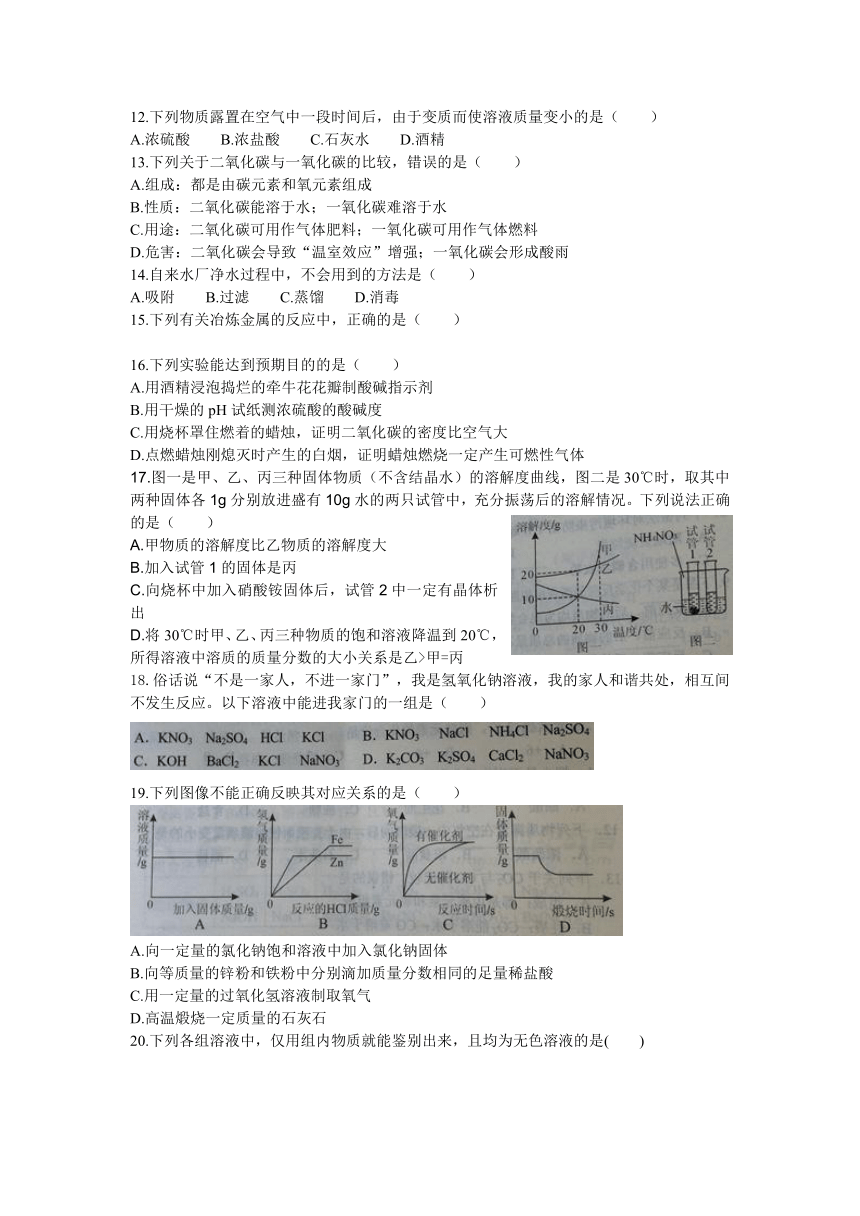 12.下列物质露置在空气中一段时间后，由于变质而使溶液质量变小的是（　　）
A.浓硫酸　　B.浓盐酸　　C.石灰水　　D.酒精
13.下列关于二氧化碳与一氧化碳的比较，错误的是（　　）
A.组成：都是由碳元素和氧元素组成
B.性质：二氧化碳能溶于水；一氧化碳难溶于水
C.用途：二氧化碳可用作气体肥料；一氧化碳可用作气体燃料
D.危害：二氧化碳会导致“温室效应”增强；一氧化碳会形成酸雨
14.自来水厂净水过程中，不会用到的方法是（　　）
A.吸附　　B.过滤　　C.蒸馏　　D.消毒
15.下列有关冶炼金属的反应中，正确的是（　　）
16.下列实验能达到预期目的的是（　　）
A.用酒精浸泡捣烂的牵牛花花瓣制酸碱指示剂
B.用干燥的 pH 试纸测浓硫酸的酸碱度
C.用烧杯罩住燃着的蜡烛，证明二氧化碳的密度比空气大
D.点燃蜡烛刚熄灭时产生的白烟，证明蜡烛燃烧一定产生可燃性气体
17.图一是甲、乙、丙三种固体物质（不含结晶水）的溶解度曲线，图二是 30℃时，取其中
两种固体各 1g 分别放进盛有 10g 水的两只试管中，充分振荡后的溶解情况。下列说法正确
的是（　　）
A.甲物质的溶解度比乙物质的溶解度大
B.加入试管 1 的固体是丙
C.向烧杯中加入硝酸铵固体后，试管 2 中一定有晶体析
出
D.将 30℃时甲、乙、丙三种物质的饱和溶液降温到 20℃，
所得溶液中溶质的质量分数的大小关系是乙>甲=丙
溶解度/g
甲
乙
丙
20
10
0 20 30 温度/℃
图一
NH4NO3 试管1 试管2
水
图二
18. 俗话说“不是一家人，不进一家门”，我是氢氧化钠溶液，我的家人和谐共处，相互间
不发生反应。以下溶液中能进我家门的一组是（　　）
A. KNO3 Na2SO4 HCl KCl B. KNO3 NaCl NH4Cl Na2SO4
C. KOH BaCl2 KCl NaNO3 D. K2CO3 K2SO4 CaCl2 NaNO3
19.下列图像不能正确反映其对应关系的是（　　）
溶液质量/g 0 加入固体质量/g A
氢气质量/g Fe Zn 0 反应的HCl质量/g B
氧气质量/g 有催化剂 无催化剂 0 反应时间/s C
固体质量/g 0 煅烧时间/s D
A.向一定量的氯化钠饱和溶液中加入氯化钠固体
B.向等质量的锌粉和铁粉中分别滴加质量分数相同的足量稀盐酸
C.用一定量的过氧化氢溶液制取氧气
D.高温煅烧一定质量的石灰石
20.下列各组溶液中，仅用组内物质就能鉴别出来，且均为无色溶液的是(　　)